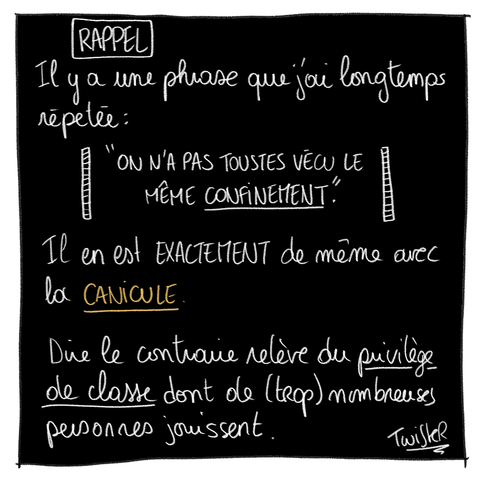 RAPPEL
Il y a une phrase que j'ai longtemps
répetée :
"ON N'A PAS TOUSTES VÉCU LE
MÊME CONFINEMENT."
Il en est EXACTEMENT de même avec
la CANICULE.
Dire le contraire relève du privilège
de classe dont de (trop) nombreuses
personnes jouissent.
TwisteR